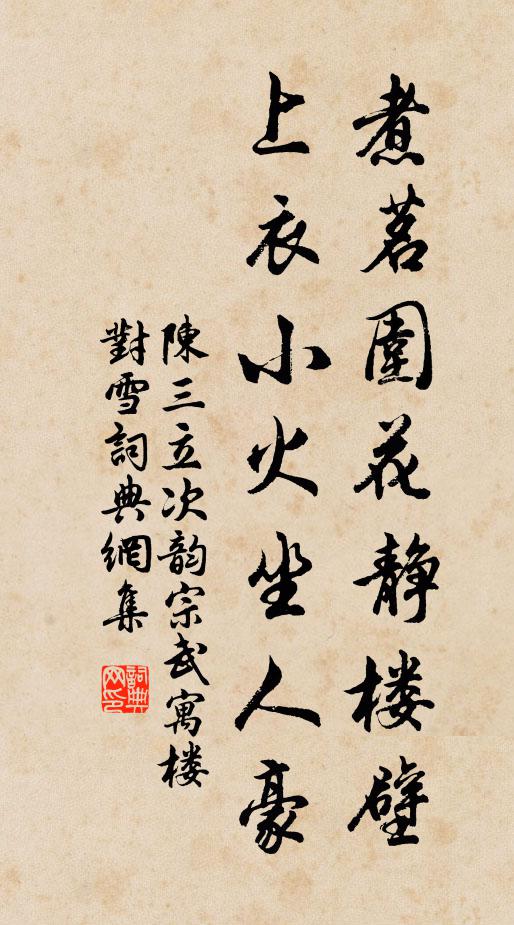 煮茗圍花静楼壁
上衣小火坐人豪
陳三立次韵宗武寓楼
對雪詞典網集
詞典网印